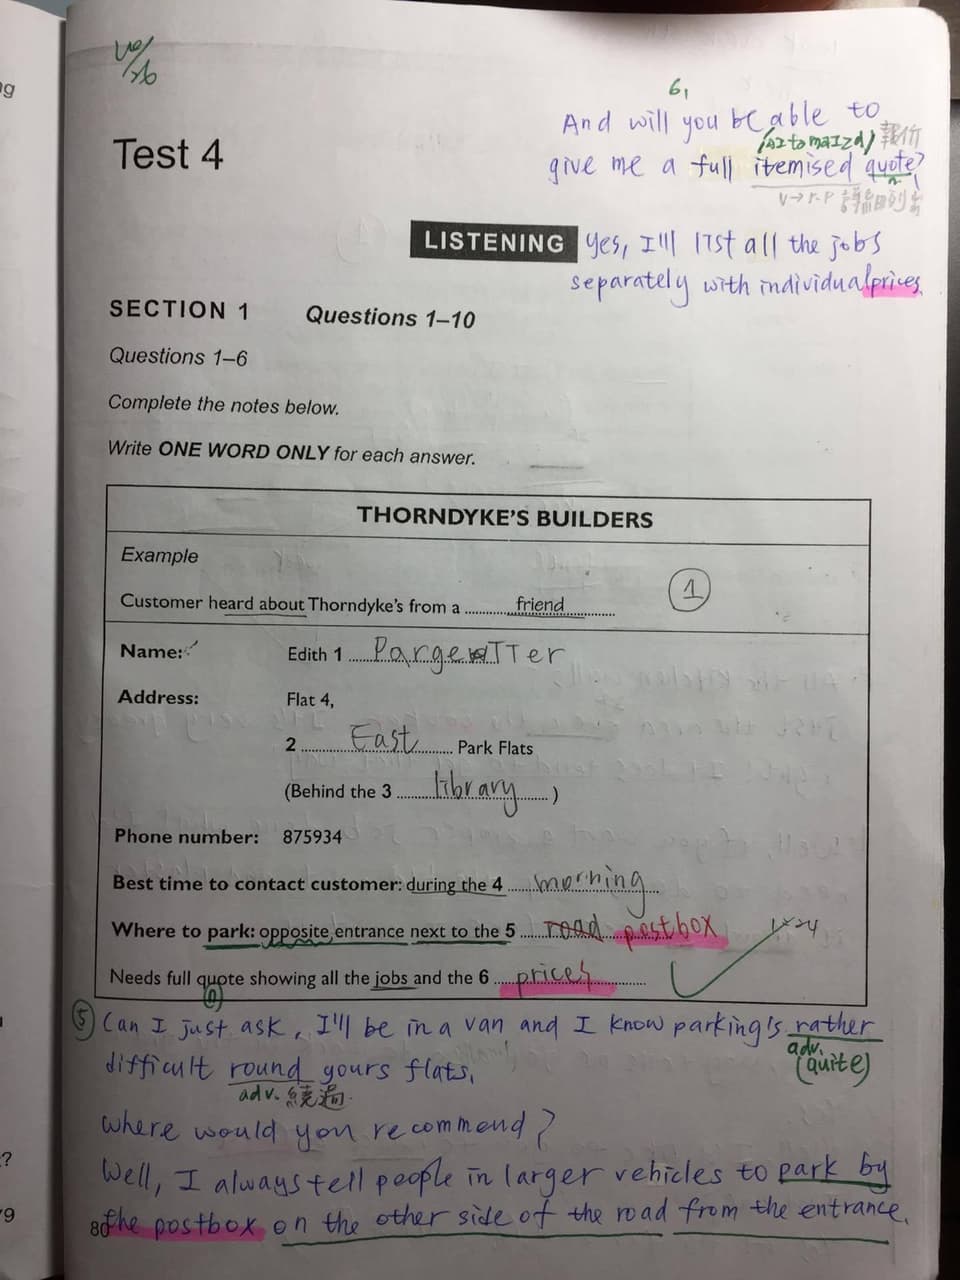 6,
And will you be able to
Test 4
/aItəmaIzd/ 報價
give me a full itemised quote?
n.
v→ p.p 詳細列
LISTENING
yes, I'll list all the jobs
separately with individual prices.
SECTION 1 Questions 1–10
Questions 1–6
Complete the notes below.
Write ONE WORD ONLY for each answer.
THORNDYKE'S BUILDERS
Example
1
Customer heard about Thorndyke's from a friend
Name: Edith 1 PargeTTer
Address: Flat 4,
2 East Park Flats
(Behind the 3 library )
Phone number: 875934
Best time to contact customer: during the 4 morning
Where to park: opposite entrance next to the 5 road postbox
Needs full quote showing all the jobs and the 6 prices
(n)
⑤ Can I just ask, I'll be in a van and I know parking's rather
adv.
difficult round yours flats,
(quite)
adv. 繞過.
where would you recommend?
Well, I always tell people in larger vehicles to park by
the postbox on the other side of the road from the entrance.
80